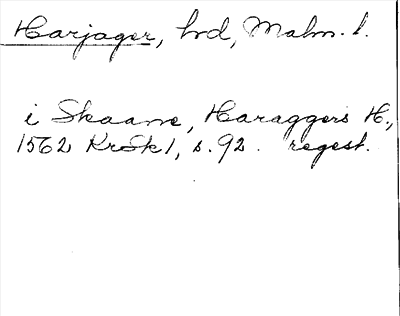 Harjager, hrd, Malm. l.
i Skaane, Haraggers H.,
1562 KrSk1, s. 92. regest.